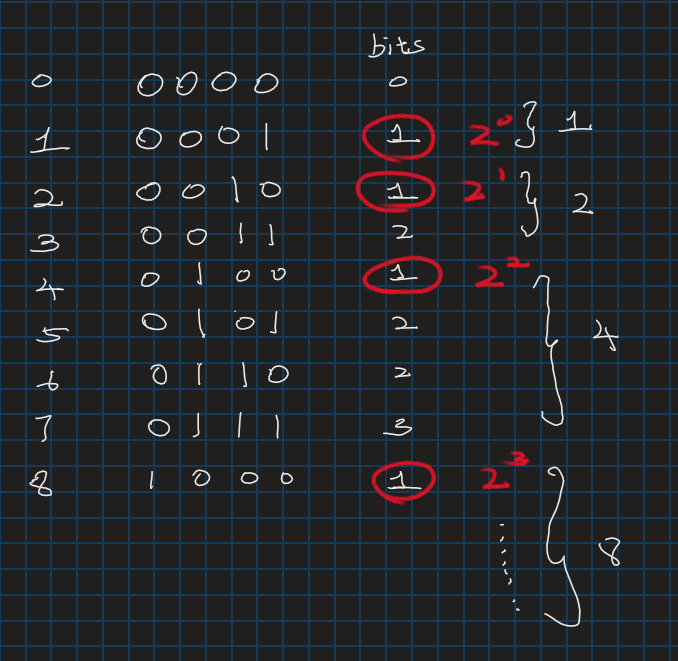 bits
0 0 0 0 0 0
1 0 0 0 1 1 2^0 } 1
2 0 0 1 0 1 2^1 } 2
3 0 0 1 1 2
4 0 1 0 0 1 2^2
5 0 1 0 1 2 } 4
6 0 1 1 0 2
7 0 1 1 1 3
8 1 0 0 0 1 2^3
} 8